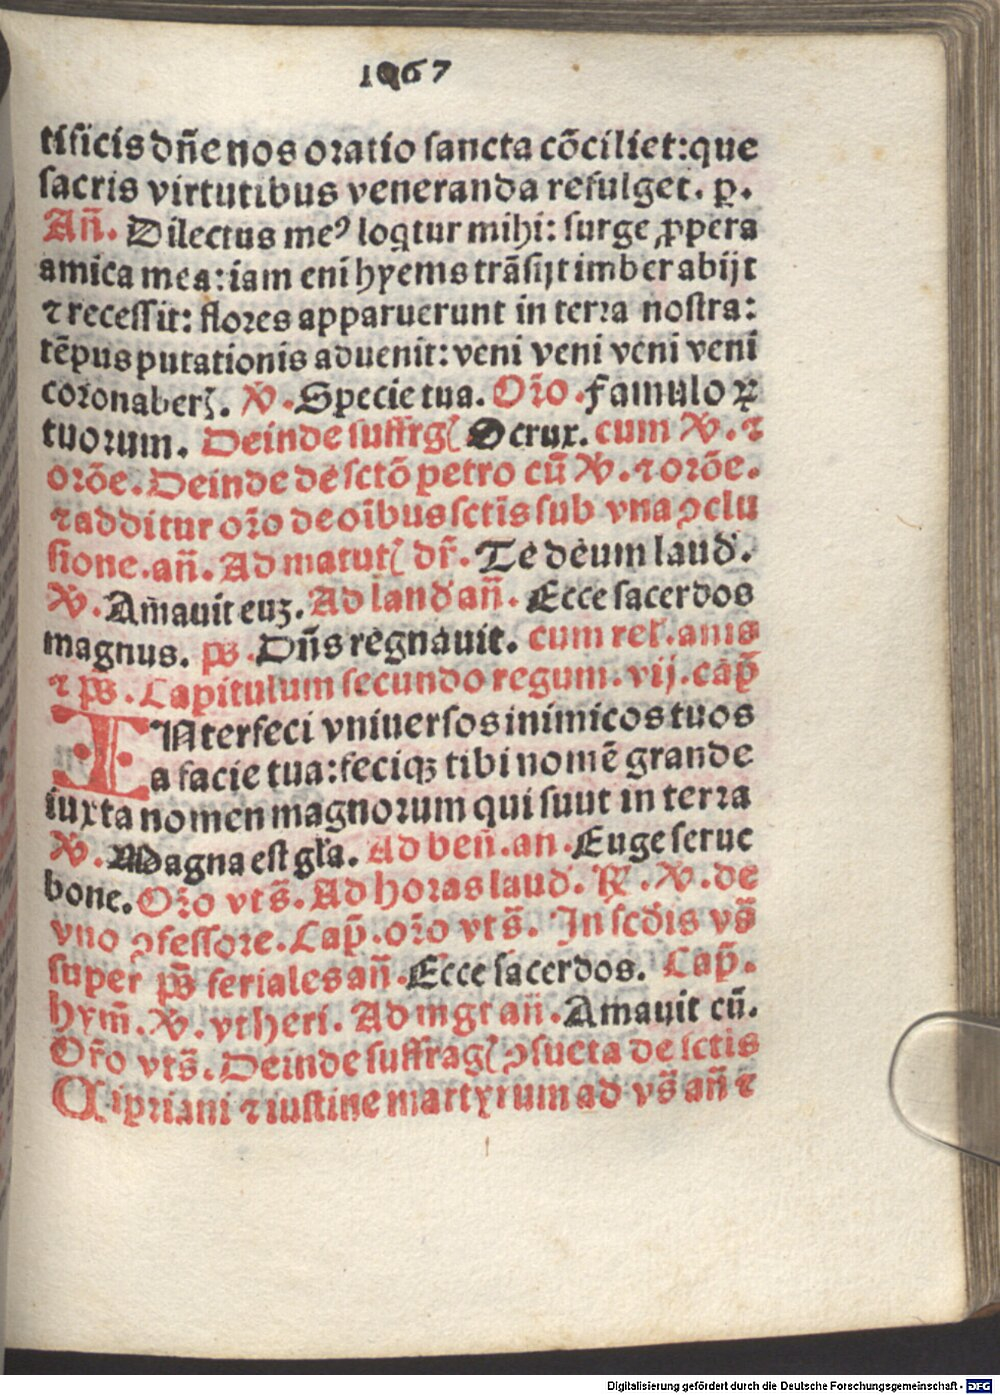 1067
tificis dn̄e nos oratio sancta cōciliet: que
sacris virtutibus veneranda refulget. p.
An̄. Dilectus meꝰ loqtur mihi: surge ꝓpera
amica mea: iam eni hyems trāsijt imber abijt
⁊ recessit: flores apparuerunt in terra nostra:
tēpus putationis aduenit: veni veni veni veni
coronaberꝭ. ℣. Specie tua. Oro̅. Famuloꝝ
tuorum. Deinde suffrgꝭ De crux. cum ℣. ⁊
orōe. Deinde de sctō petro cū ℣. ⁊ orōe.
⁊ additur oro̅ de oībus sctīs sub vna ꝯclu
sione. an̄. Ad matutꝭ dr̄. Te deum laud.
℣. Amauit euꝫ. Ad laud an̄. Ecce sacerdos
magnus. ps. Dn̄s regnauit. cum rel. anis
⁊ ps. Capitulum secundo regum. vij. cap̄
INterfeci vniuersos inimicos tuos
a facie tua: feciqꝫ tibi nomē grande
iuxta nomen magnorum qui suut in terra
℣. Magna est gl̄a. Ad ben̄. an. Euge serue
bone. Oro̅ vts̄. Ad horas laud. ℟. ℣. de
vno ꝯfessore. Cap̄. oro̅ vts̄. In scdis vs̄
super ps̄ feriales an̄. Ecce sacerdos. Cap̄.
hym̄. ℣. vt heri. Ad mgt an̄. Amauit eū.
Oro̅ vts̄. Deinde suffragꝭ ꝯsueta de sctis
Cipriani ⁊ iustine martyrum ad vs̄ an̄ ⁊
Digitalisierung gefördert durch die Deutsche Forschungsgemeinschaft - DFG